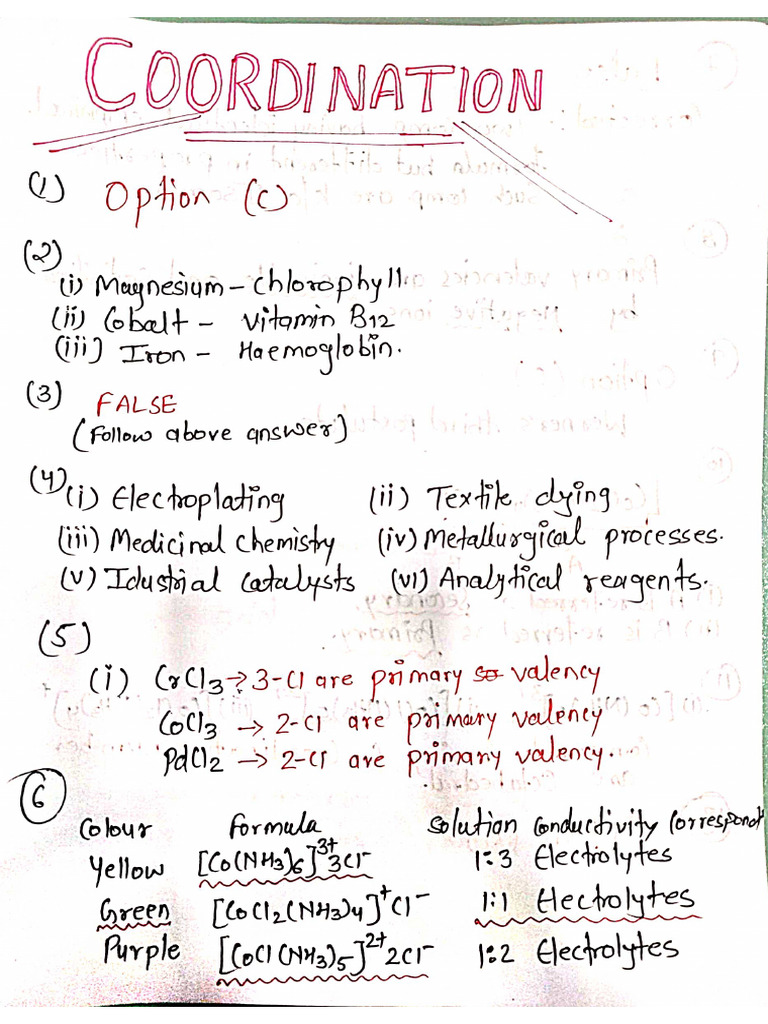 COORDINATION
(1) Option (c)
(2)
(i) Magnesium - chlorophyll
(ii) Cobalt - Vitamin B12
(iii) Iron - Haemoglobin.
(3) FALSE
(Follow above answer)
(4) (i) Electroplating (ii) Textile dying
(iii) Medicinal chemistry (iv) Metallurgical processes.
(v) Idustrial catalysts (vi) Analytical reagents.
(5)
(i) CrCl3 → 3-Cl are primary valency
CoCl3 → 2-Cl are primary valency
PdCl2 → 2-Cl are primary valency.
6
Colour Formula Solution Conductivity Correspond
Yellow [Co(NH3)6]3+3Cl- 1:3 Electrolytes
Green [CoCl2(NH3)4]+Cl- 1:1 Electrolytes
Purple [CoCl(NH3)5]2+2Cl- 1:2 Electrolytes